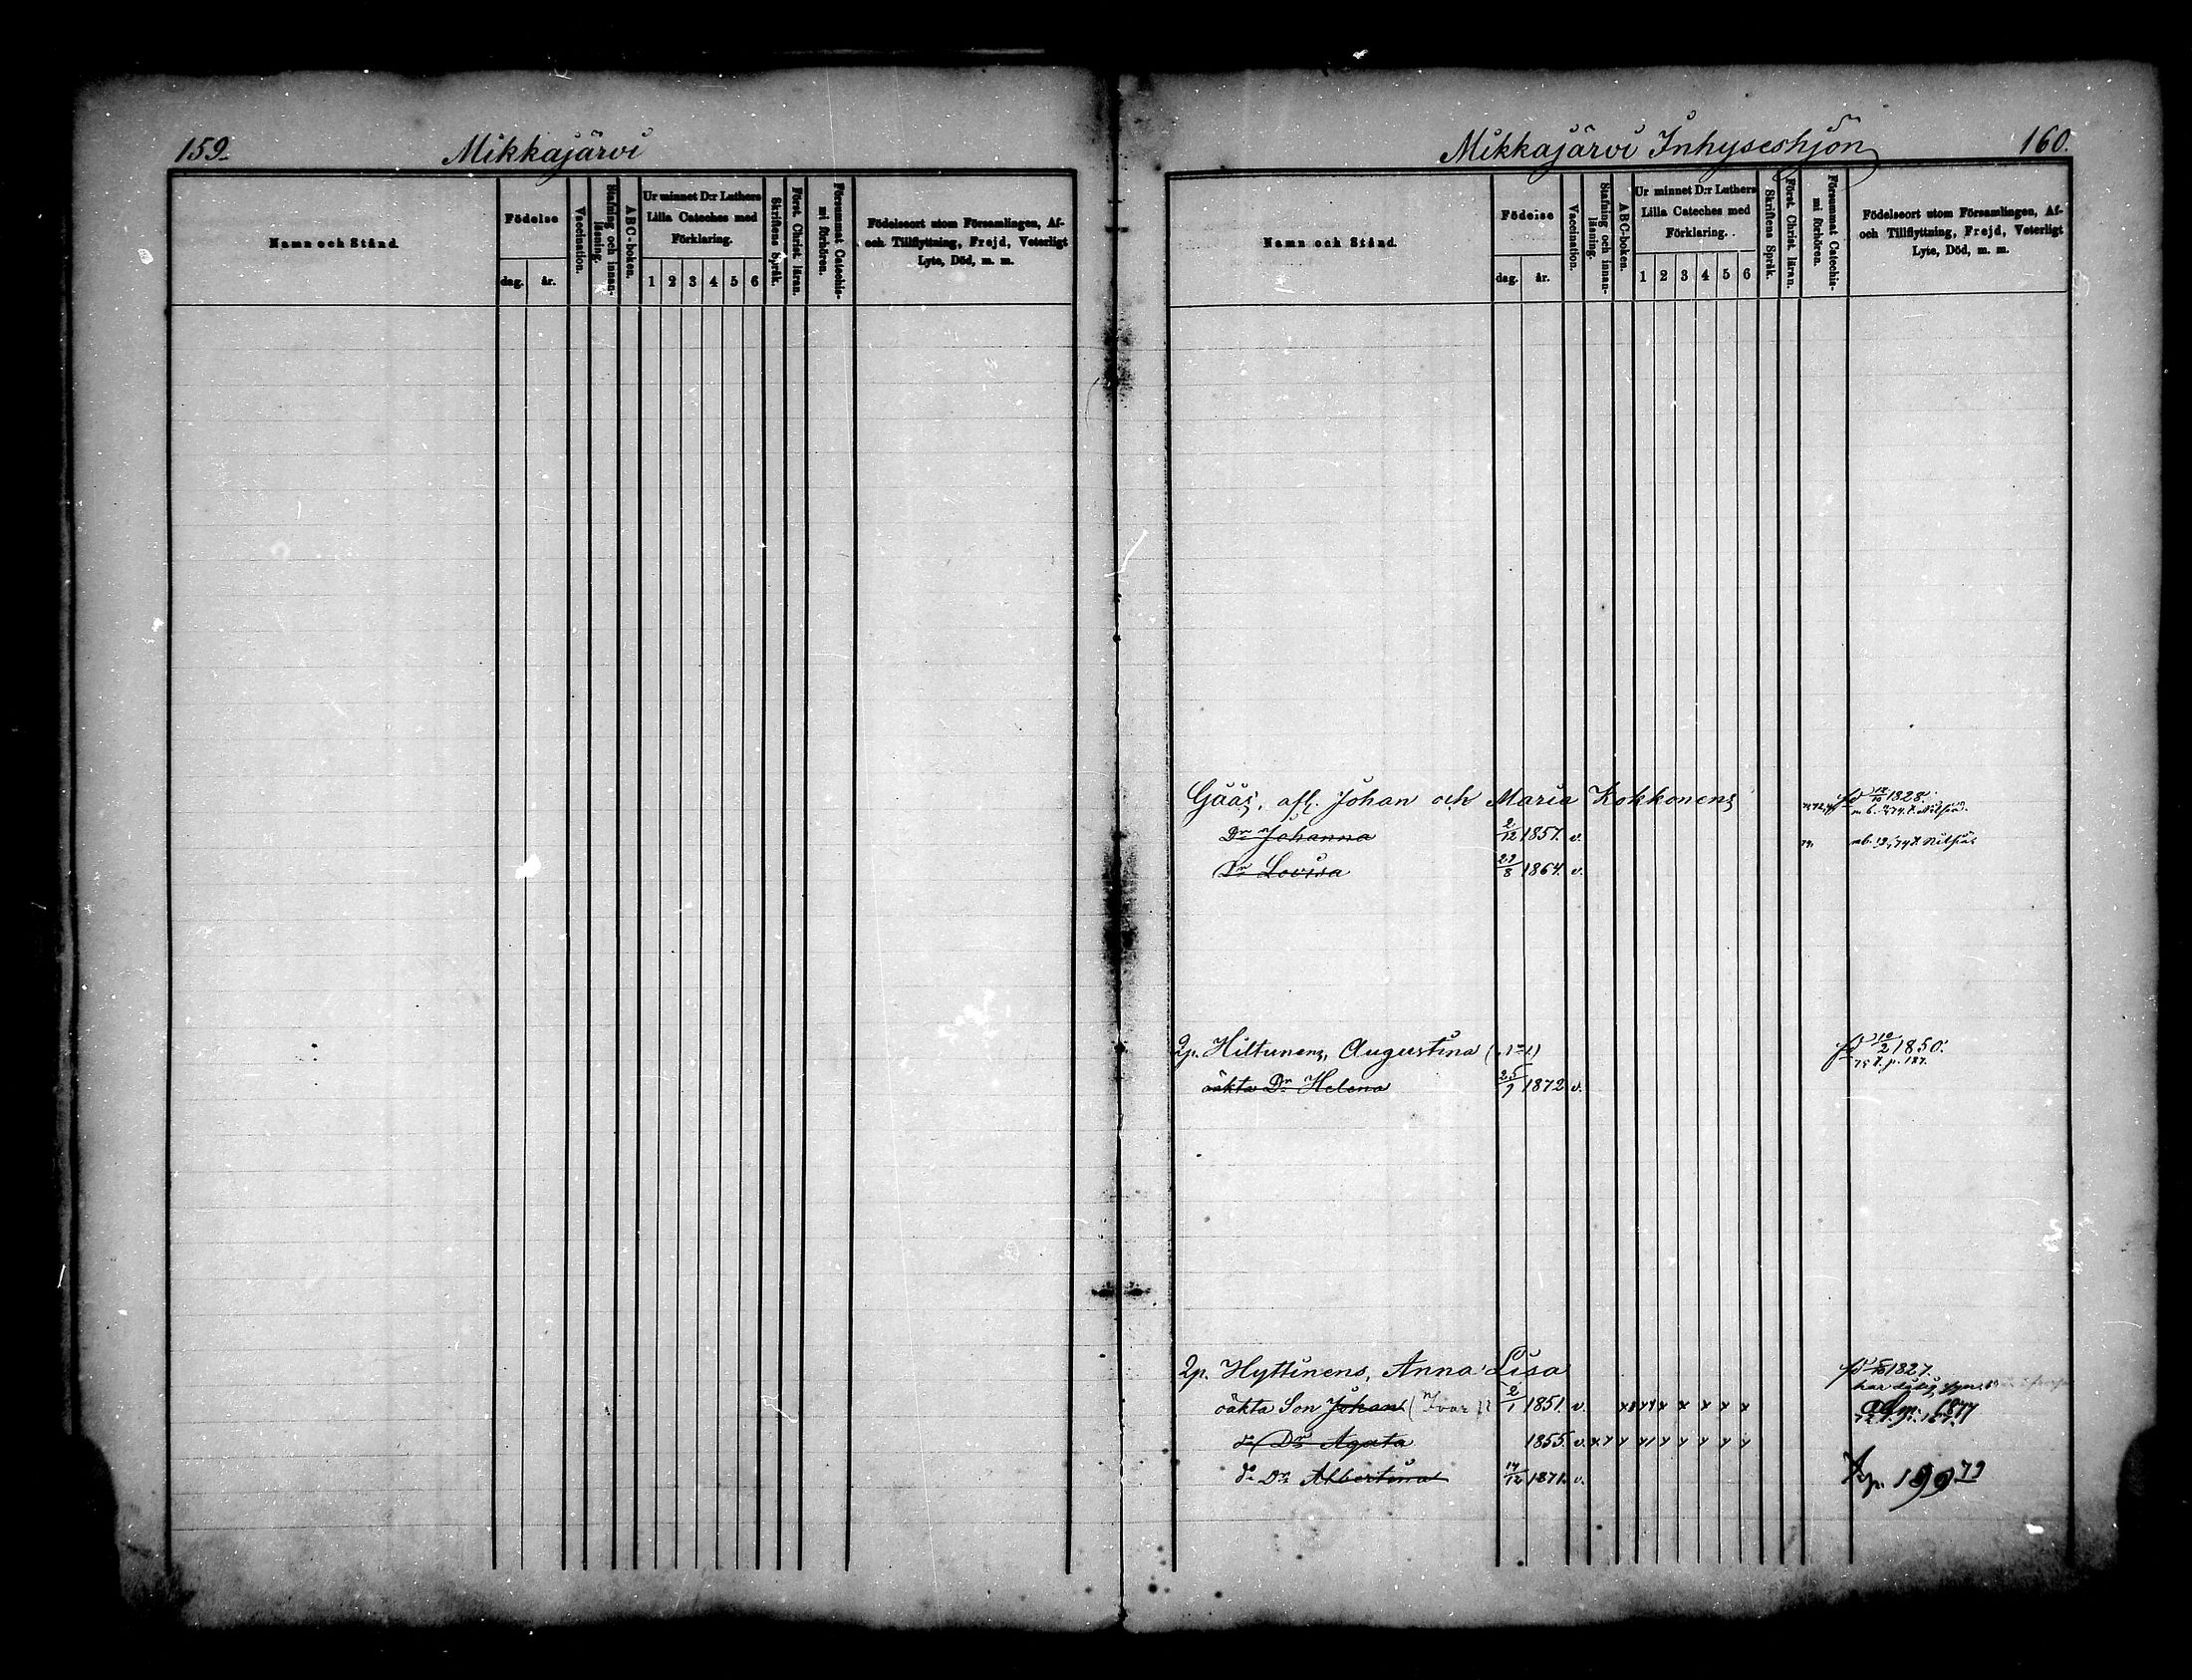 159.
Mikkajärvi
Namn och Stånd.
Födelse
dag.
år.
Vaccination.
Stafning och innanläsning.
ABC-boken.
Ur minnet D:r Luthers
Lilla Cateches med
Förklaring.
1 2 3 4 5 6
Skriftens Språk.
Först. Christ. läran.
Försummat Catechismi förhören.
Födelseort utom Församlingen, Af-
och Tillflyttning, Frejd, Veterligt
Lyte, Död, m. m.
Mikkajärvi Inhyseshjon
160.
Namn och Stånd.
Födelse
dag.
år.
Vaccination.
Stafning och innanläsning.
ABC-boken.
Ur minnet D:r Luthers
Lilla Cateches med
Förklaring.
1 2 3 4 5 6
Skriftens Språk.
Först. Christ. läran.
Försummat Catechismi förhören.
Födelseort utom Församlingen, Af-
och Tillflyttning, Frejd, Veterligt
Lyte, Död, m. m.
Gääs, afl. Johan och Maria Kokkonens 1828.
Dr Johanna 2/12 1857. v.
Dr Lovisa 23/8 1864. v.
Qp. Hiltunens, Augustina 1850.
p. 187.
oäkta Dr Helena 1872 v.
Qp. Hyttinens, Anna Lisa 1827.
oäkta Son Johan (Ivar) 2/1 1851. v. x x x x x x
do Dr Agata 1855. v.
do Dr Albertina 14/12 1871. v.